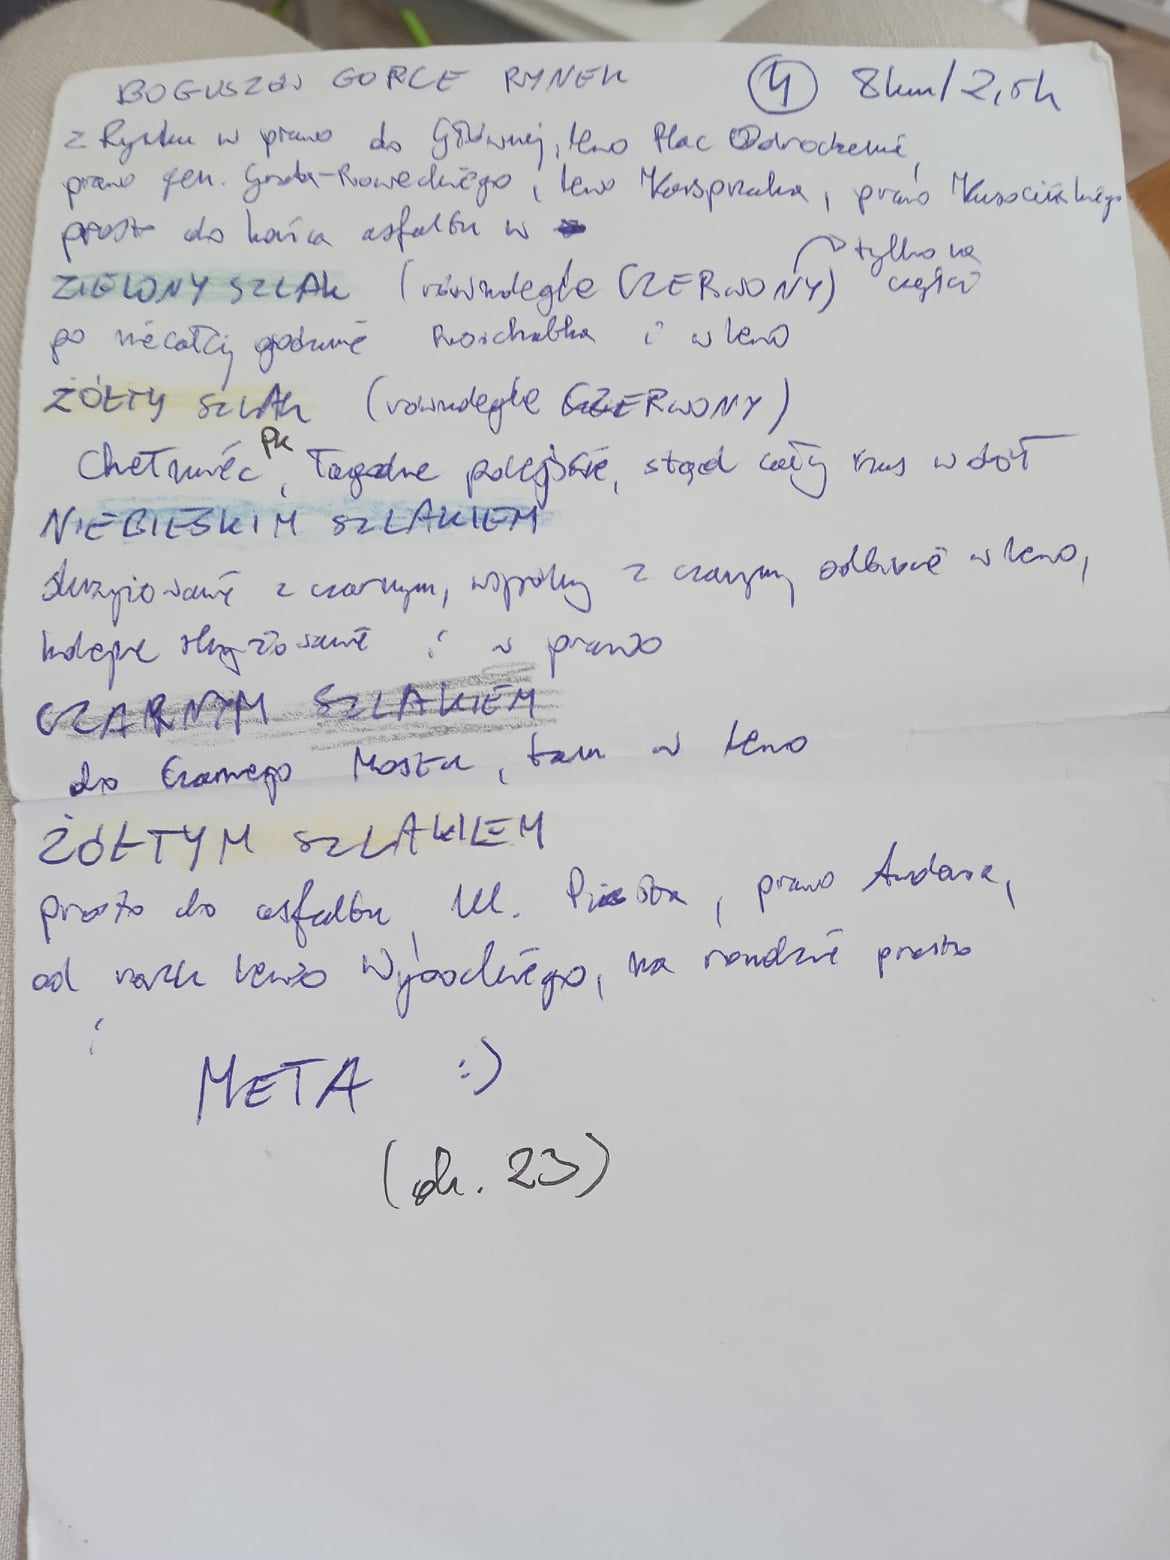 BOGUSZÓW GORCE RYNEK ④ 8km/2,5h
z Rynku w prawo do Głównej, lewo Plac Odrodzenia,
prawo gen. Grota-Roweckiego, lewo Kasprzaka, prawo Kusocińskiego
prosto do końca asfaltu w
ZIELONY SZLAK (równolegle CZERWONY) tylko na części
po niecałej godzinie Rozchatka i w lewo
ŻÓŁTY SZLAK (równolegle CZERWONY)
Chełmiec PK, łagodne podejście, stąd cały czas w dół
NIEBIESKIM SZLAKIEM
skrzyżowanie z czarnym, wspólny z czarnym odbicie w lewo,
kolejne skrzyżowanie i w prawo
CZARNYM SZLAKIEM
do Czarnego Mostu, tam w lewo
ŻÓŁTYM SZLAKIEM
prosto do asfaltu, ul. Piasta, prawo Andersa,
od razu lewo Wysockiego, na rondzie prosto
i
META :)
(ok. 23)